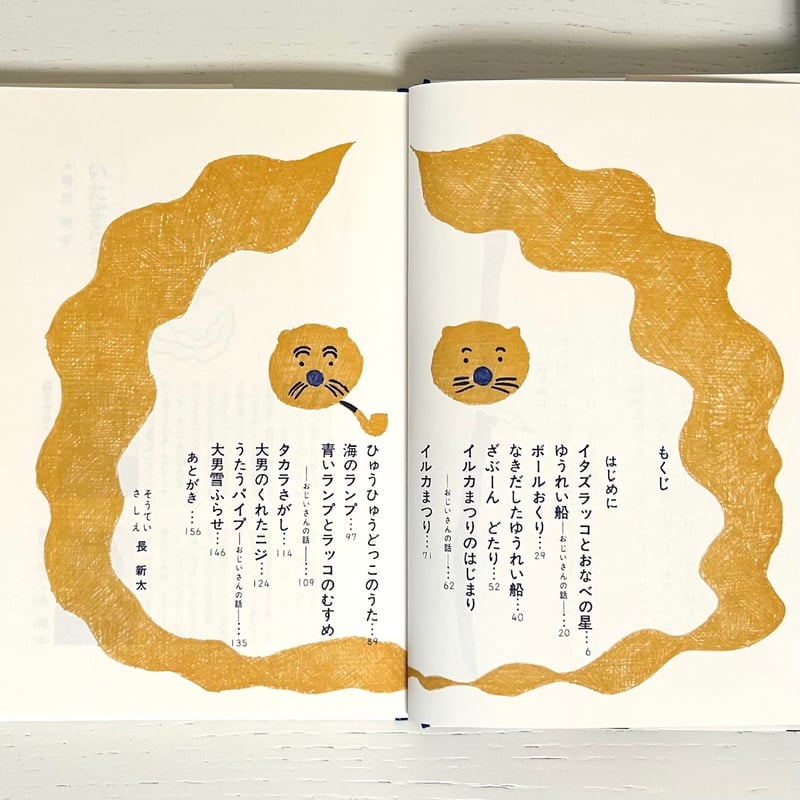 もくじ
はじめに
イタズラッコとおなべの星…6
ゆうれい船―おじいさんの話―…20
ボールおくり…29
なきだしたゆうれい船…40
ざぶーん どたり…52
イルカまつりのはじまり
―おじいさんの話―…62
イルカまつり…71
ひゅうひゅうどっこのうた…84
海のランプ…97
青いランプとラッコのむすめ
―おじいさんの話―…109
タカラさがし…114
大男のくれたニジ…124
うたうパイプ―おじいさんの話―…135
大男雪ふらせ…146
あとがき…156
そうてい
さしえ 長 新太